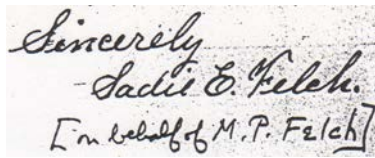 Sincerely
Sadie E. Felch.
[on behalf of M. P. Felch]